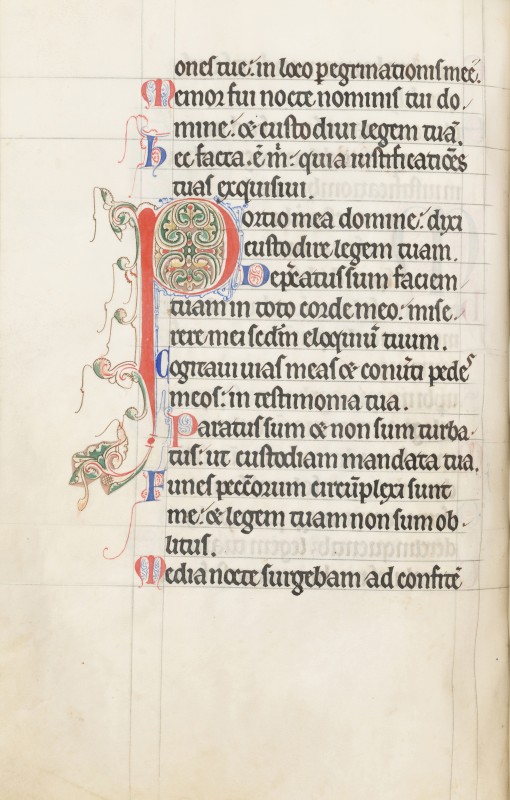 ones tue: in loco pegrinationis meę.
Memor fui nocte nominis tui do
mine: & custodiui legem tuā.
hec facta. ē m̄: quia iustificatiōes
tuas exquisiui.
Portio mea domine: dixi
custodire legem tuam.
Deprecatus sum faciem
tuam in toto corde meo: mise
rere mei sedm̄ eloquiū tuum.
Cogitaui uias meas & conūti pedes
meos: in testimonia tua.
Paratus sum & non sum turba
tus: ut custodiam mandata tua.
Funes pecc̄orum circūplexi sunt
me: & legem tuam non sum ob
litus.
Media nocte surgebam ad confitē